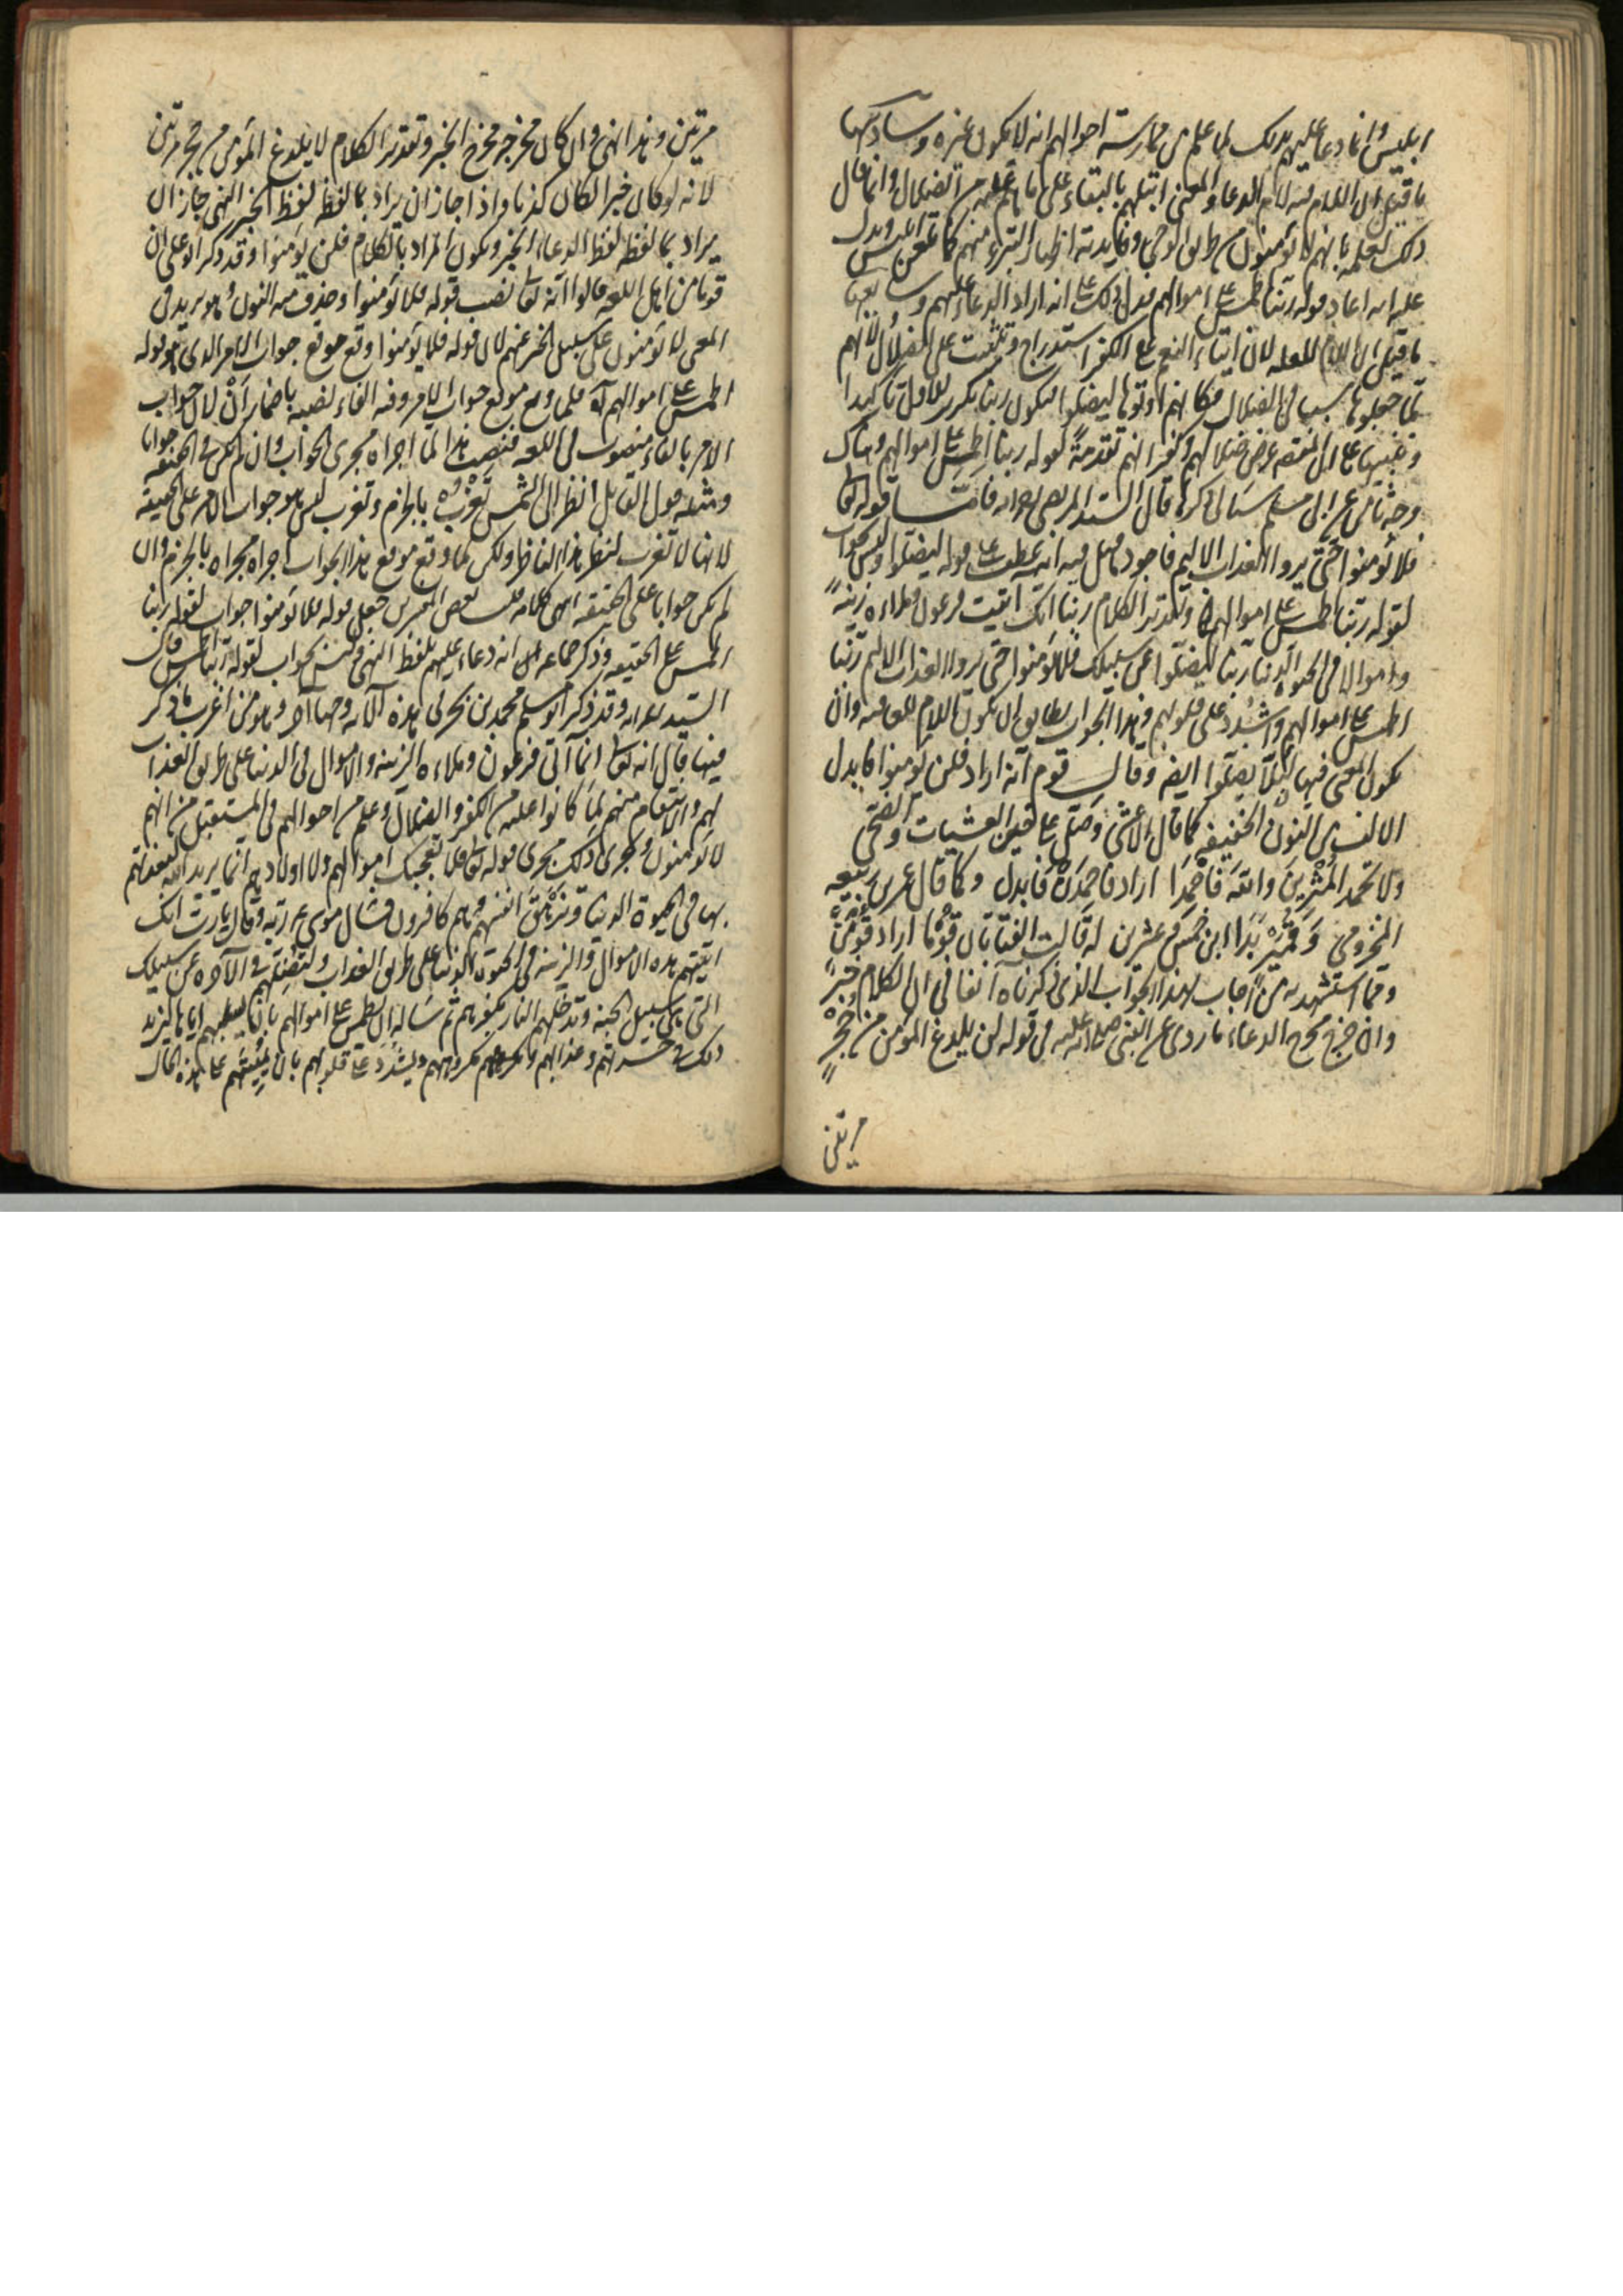 ابليس وانما دعا عليهم بذلك لما علم من ممارسة احوالهم انه لا يكون غيره وسادسها
ما قيل ان اللام فيه لام الدعاء والمعنى ابتلهم بالبقاء على ما هم عليه من الضلال وانما قال
ذلك لعلمه بانهم لا يؤمنون من طريق الوحى وفايدته اظهار التبرء منهم كما تلعن ابليس ويدل
عليه انه اعاد قوله ربنا اطمس على اموالهم فدل ذلك على انه اراد الدعاء عليهم وسابعها
ما قيل ان اللام للعلة لان ايتاء النعم مع الكفر استدراج وتثبيت على الضلال ولانهم
لما جعلوها سببا فى الضلال فكانهم اوتوها ليضلوا فيكون ربنا تكرير للاول تاكيدا
وتنبيها على ان المقصد عرض ضلالهم وكفرانهم تقدمة لقوله ربنا اطمس على اموالهم وهناك
وجه ثامن عن ابى مسلم سياتى ذكره قال السيد المرتضى فاما قوله تعالى
فلا يؤمنوا حتى يروا العذاب الاليم فاجود ما قيل فيه انه عطف على قوله ليضلوا وليس بجواب
لقوله ربنا اطمس على اموالهم وتقدير الكلام ربنا انك اتيت فرعون وملاءه زينة
واموالا فى الحيوة الدنيا ربنا ليضلوا عن سبيلك فلا يؤمنوا حتى يروا العذاب الاليم ربنا
اطمس على اموالهم واشدد على قلوبهم وهذا الجواب يطابق ان يكون اللام للعاقبة وان
يكون المعنى فيها لئلا يضلوا ايضا وقال قوم انه اراد فلن يؤمنوا فابدل
الالف من النون الخفيفة كما قال الاعشى وصل على حين العشيات والضحى
ولا تحمد المثرين والله فاحمدا اراد فاحمدن فابدل وكما قال عمر بن ربيعه
المخزومى وقمير بدا ابن خمس وعشرين له قالت الفتاتان قوما اراد قومن
ومما استشهد به من اجاب بهذا الجواب الذى ذكرناه آنفا فى ان الكلام خبر
وان خرج مخرج الدعاء ما روى عن النبى صلى الله عليه فى قوله لن يلدغ المؤمن من جحر
مرتين
مرتين وهذا نهى وان كان مخرجه مخرج الخبر وتقدير الكلام لا يلدغ المؤمن من جحر مرتين
لانه لو كان خبرا لكان كذبا واذا جاز ان يراد بما لفظه لفظ الخبر النهى جاز ان
يراد بما لفظه لفظ الدعاء الخبر ويكون المراد بالكلام فلن يؤمنوا وقد ذكر ابو على ان
قوما من اهل اللغة قالوا انه تعالى نصب قوله فلا يؤمنوا وحذف منه النون وهو يريد فى
المعنى لا يؤمنون على سبيل الخبر عنهم لان قوله فلا يؤمنوا وقع موقع جواب الامر الذى هو قوله
اطمس على اموالهم فلما وقع موقع جواب الامر وفيه الفاء نصبه باضمار ان لان جواب
الامر بالفاء منصوب فى اللغة فنصب هذا لما اجراه مجرى الجواب وان لم يكن فى الحقيقة جوابا
ومثله قول القايل انظر الى الشمس تغرب بالجزم وتغرب ليس هو جواب الامر على الحقيقة
لانها لا تغرب لنظر هذا الناظر ولكن لما وقع موقع هذا الجواب اجراه مجراه بالجزم وان
لم يكن جوابا على الحقيقة انتهى كلامه قلت بعض المفسرين جعل قوله فلا يؤمنوا جواب لقوله ربنا
اطمس على الحقيقة وذكر جماعة ان انه دعاء عليهم بلفظ النهى وليس بجواب لقوله ربنا اطمس قال
السيد وقد ذكر ابو مسلم محمد بن بحر فى هذه الآية وجها آخر وهو من اغرب ما ذكر
فيها قال انه تعالى انما آتى فرعون وملاءه الزينة والاموال فى الدنيا على طريق العذاب
لهم والانتقام منهم لما كانوا عليه من الكفر والضلال وعلم من احوالهم فى المستقبل من انهم
لا يؤمنون ويجرى ذلك مجرى قوله تعالى فلا تعجبك اموالهم ولا اولادهم انما يريد الله ليعذبهم
بها فى الحيوة الدنيا وتزهق انفسهم وهم كافرون فسال موسى ع ربه وقال يا رب انك
اتيتهم هذه الاموال والزينة فى الحيوة الدنيا على طريق العذاب ولتضلهم فى الآخرة عن سبيلك
التى هى سبيل الجنة وتدخلهم النار بكفرهم ثم سأله ان يطمس على اموالهم بان يسلبهم اياها ليزيد
ذلك فى حسرتهم وعذابهم ومكروههم ويشدد على قلوبهم بان يميتهم على هذه الحال